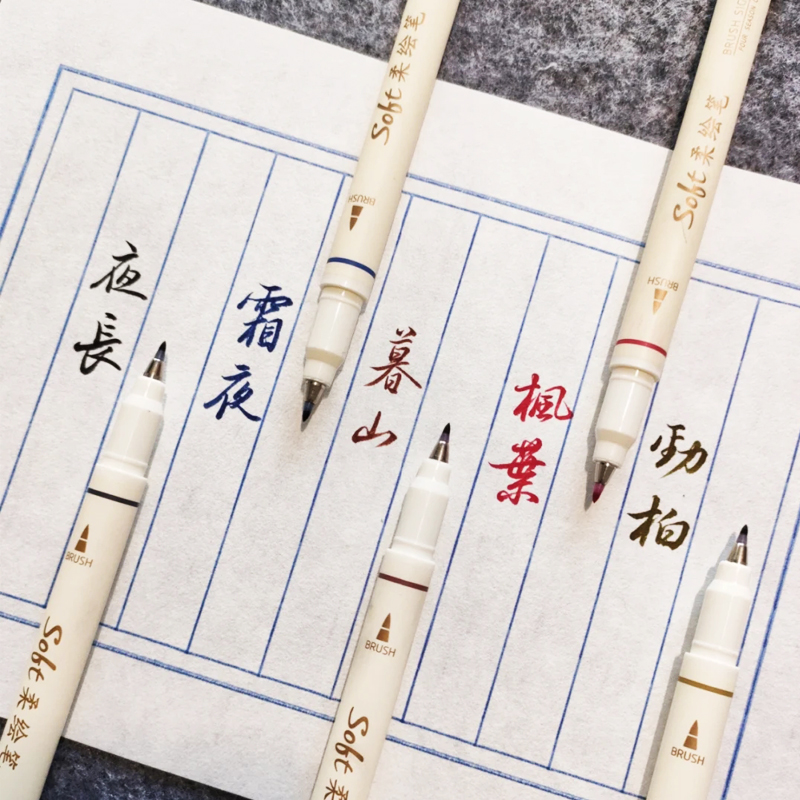 夜長
霜夜
暮山
楓葉
勁柏
Soft 柔绘笔
BRUSH
Soft 柔绘笔
BRUSH
BRUSH
Soft 柔绘笔
BRUSH
Soft 柔绘
BRUSH